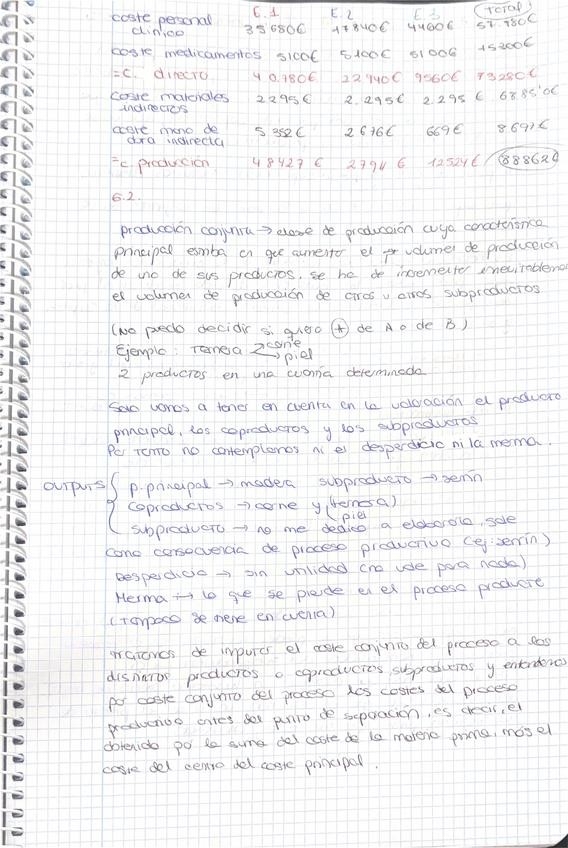 E.1 E.2 E.3 TOTAL
coste personal clínico 35680€ 17840€ 4460€ 57.980€
coste medicamentos 5100€ 5100€ 5100€ 15300€
=c. directo 40.780€ 22940€ 9560€ 73280€
coste materiales indirectos 2295€ 2.295€ 2.295€ 6885'0€
coste mano de obra indirecta 5352€ 2676€ 669€ 8697€
=c. producción 48427€ 27911€ 12524€ 88862€
6.2.
producción conjunta → clase de producción cuya característica
principal estriba en que aumentar el volumen de producción
de uno de sus productos, se ha de incrementar
el volumen de producción de otros u otros subproductos
(No puedo decidir si quiero + de A o de B)
Ejemplo: Ternera → carne → piel
2 productos en una cuantía determinada
Solo vamos a tener en cuenta en la valoración el producto
principal, los coproductos y los subproductos
Por tanto no contemplamos ni el desperdicio ni la merma.
outputs p.principal → madera subproducto → serrín
coproductos → carne y piel (ternera)
subproducto → no me dedico a elaborarlo, sale
como consecuencia de proceso productivo (ej: serrín)
Desperdicio → sin utilidad (no vale para nada)
Merma → lo que se pierde en el proceso producte
(Tampoco se tiene en cuenta)
Tratamos de imputar el coste conjunto del proceso a los
distintos productos o coproductos, subproductos y entendemos
por coste conjunto del proceso los costes del proceso
productivo antes del punto de separación, es decir, el
obtenido por la suma del coste de la materia prima, más el
coste del centro del coste principal.